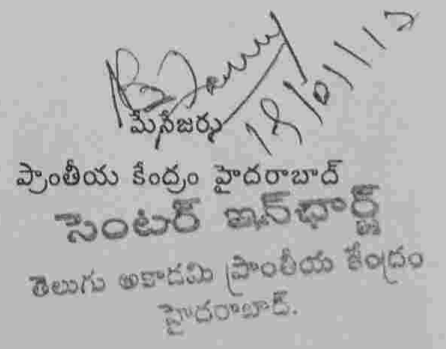 18/01/12
మేనేజరు
ప్రాంతీయ కేంద్రం హైదరాబాద్
సెంటర్ ఇన్‌ఛార్జ్
తెలుగు అకాడమి ప్రాంతీయ కేంద్రం
హైదరాబాద్.